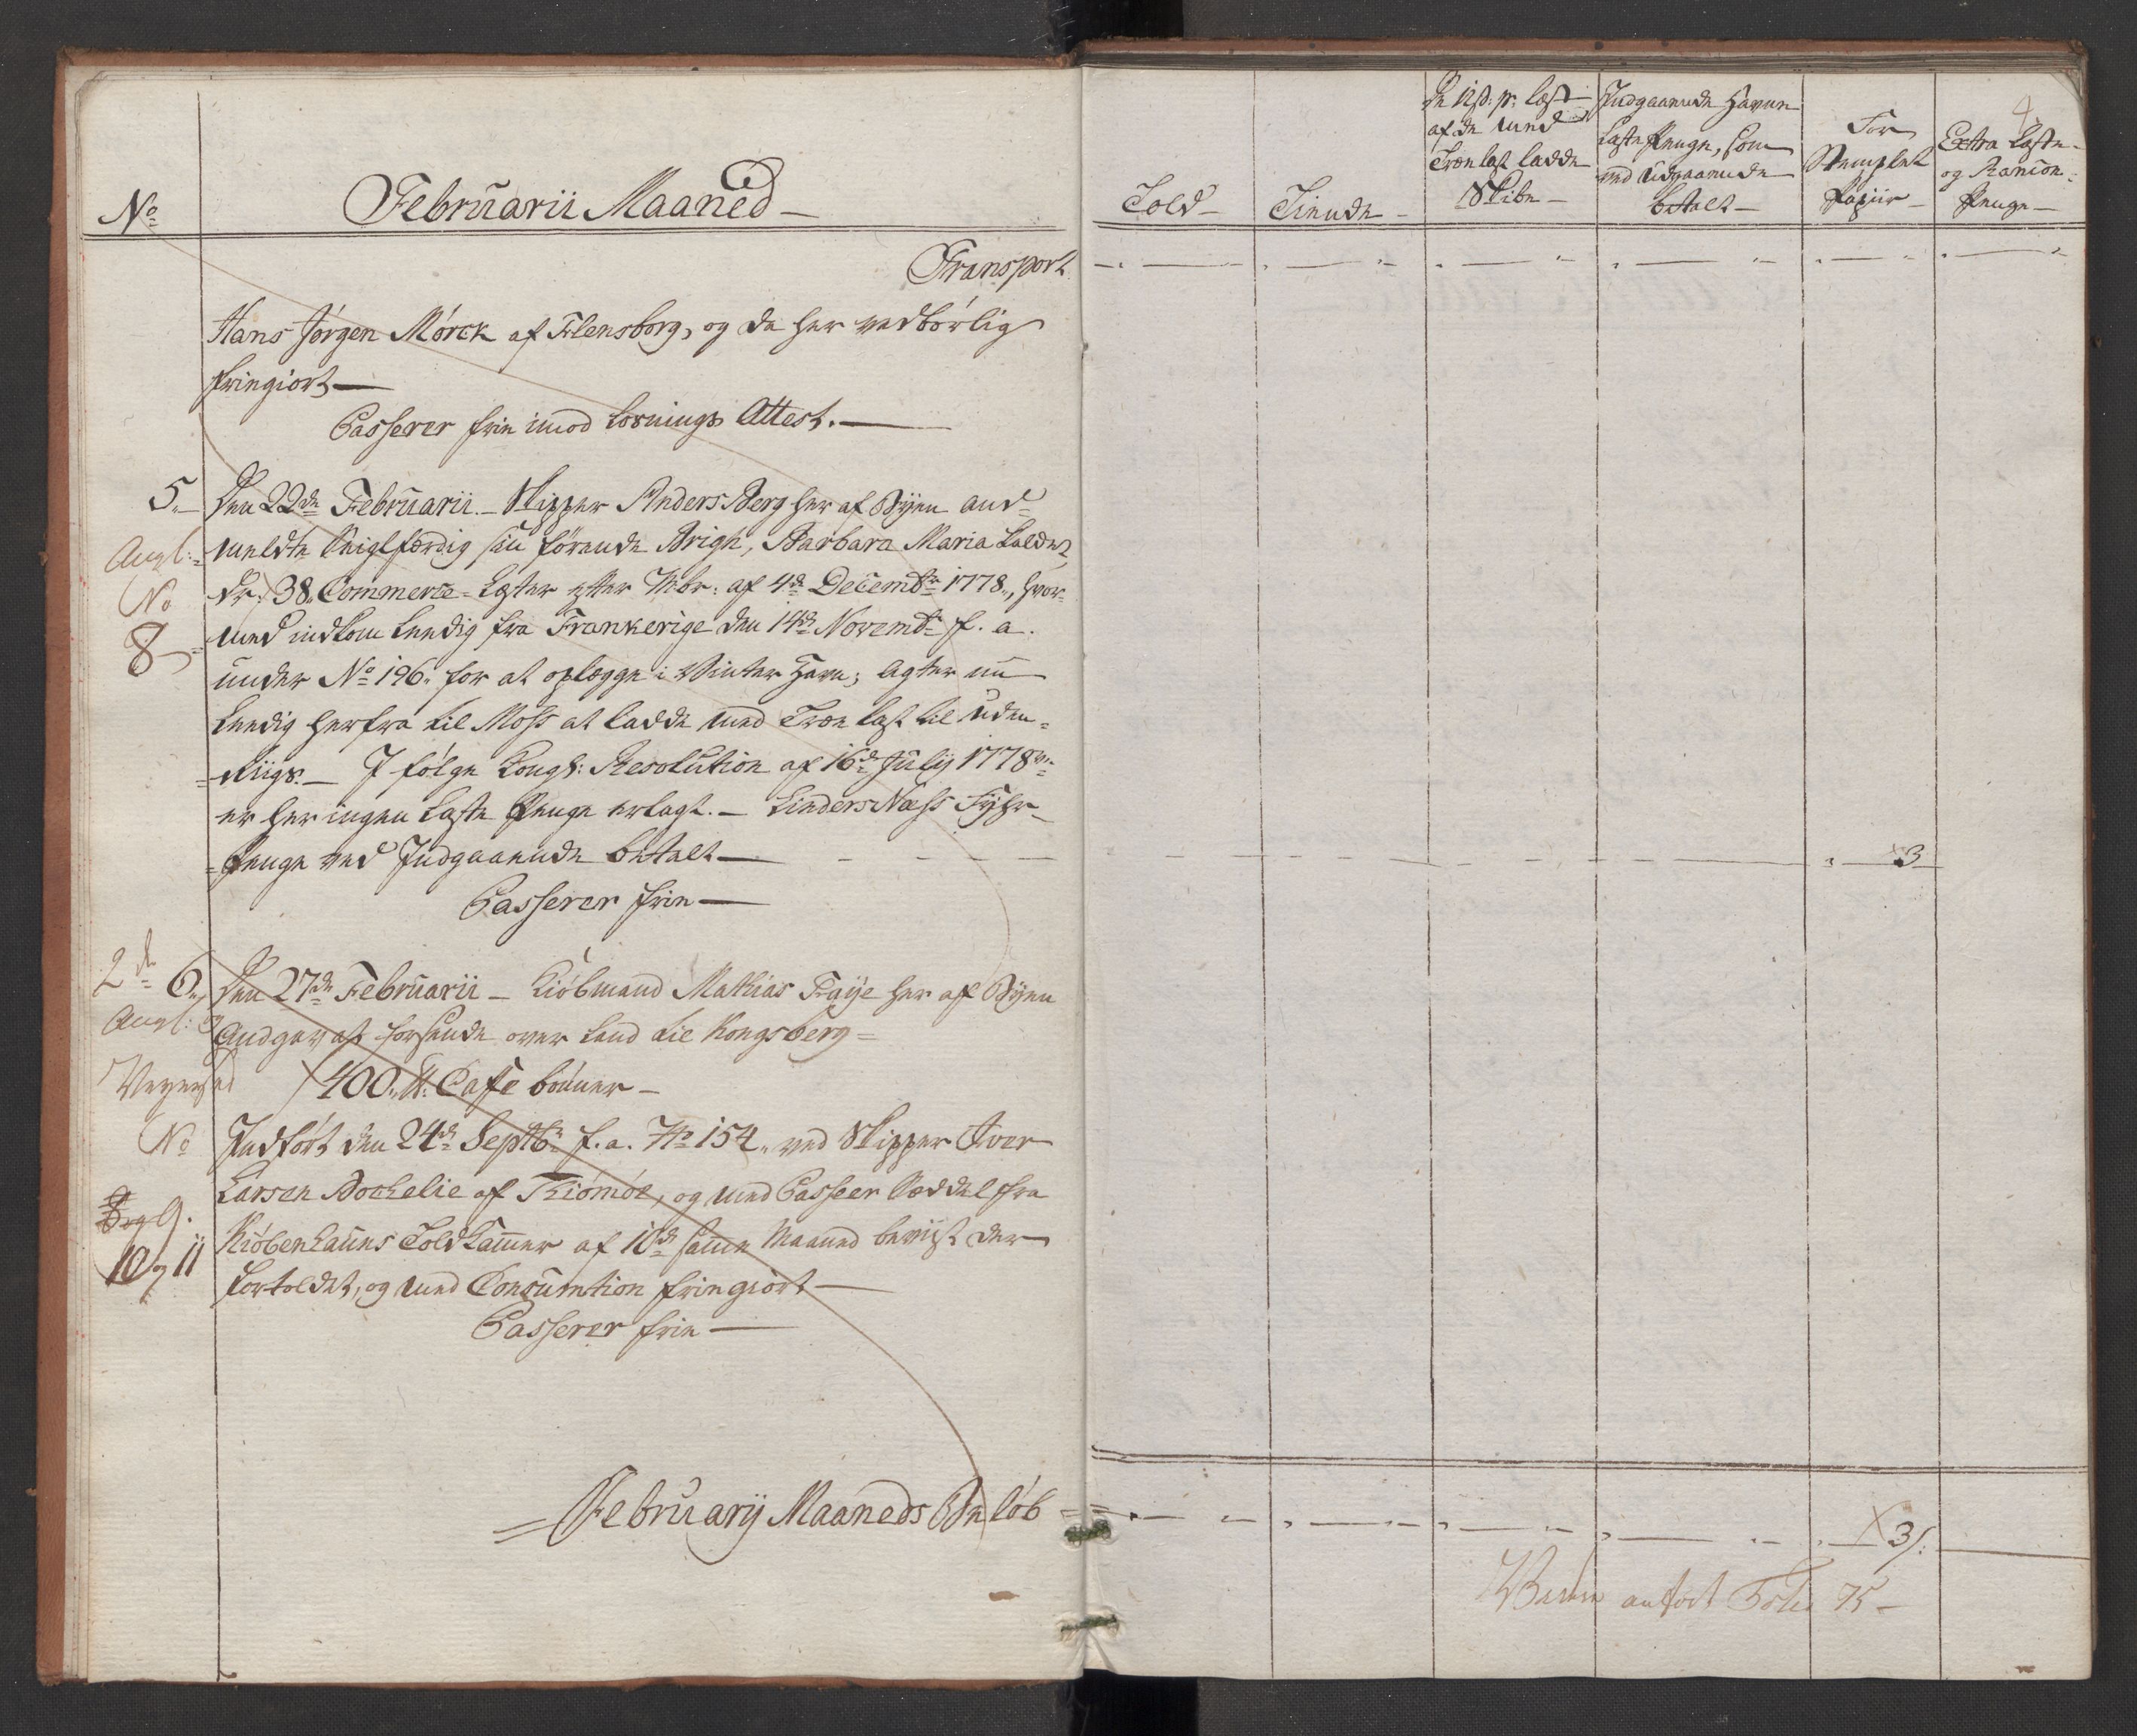 No
Februarii Maaned
Transport
Hans Jørgen Mørck af Flensborg, og da her vedbørlig
friegiort
Passerer frie imod Losnings Attest.
5. Den 22de Februarii. Skipper Anders Berg her af Byen and-
Angl: meldte Seiglfærdig sin førende Brigh, Barbara Maria kaldet,
No dr: 38 Commerce-Læster efter Mbr: af 4de Decembr 1778, hvor-
8 med indkom leedig fra Frankerige den 14de Novembr f. a.
under No 196 for at oplegge i Winter Havn; agter nu
leedig herfra til Moss at ladde med Træe last til Uden-
riigs. I følge Kongl: Resolution af 16de July 1778
er her ingen Laste Penge erlagt. Linders Næss Fyhr-
Penge ved Indgaaende betalt
Passerer frie
2de 6. Den 27de Februarii Kiøbmand Mathias Faÿe her af Byen
Angl: Andgav at forsende over Land til Kongsberg
400 lb: Caffe bønner
No Indført den 24de Septbr f. a. No 154 ved Skipper Iver
Larsen Bockelie af Tiømøe, og med Passeer Seddel fra
8 og 9. Kiøbenhauns Told Kammer af 10de samme Maaned beviist der
10 og 11 fortoldet, og med Consumtion friegiort
Passerer frie
Februarij Maaneds Beløb
4
Told
Tiende
De 12 s: pr: læst
af de med
Træelast ladde
Skibe
Indgaaende Havne
Laste Penge, som
ved Udgaaende
betalt
For
Stemplet
Papiir
Extra Laste-
og Rancon-
Penge
3
3 s:
anført Folio 75